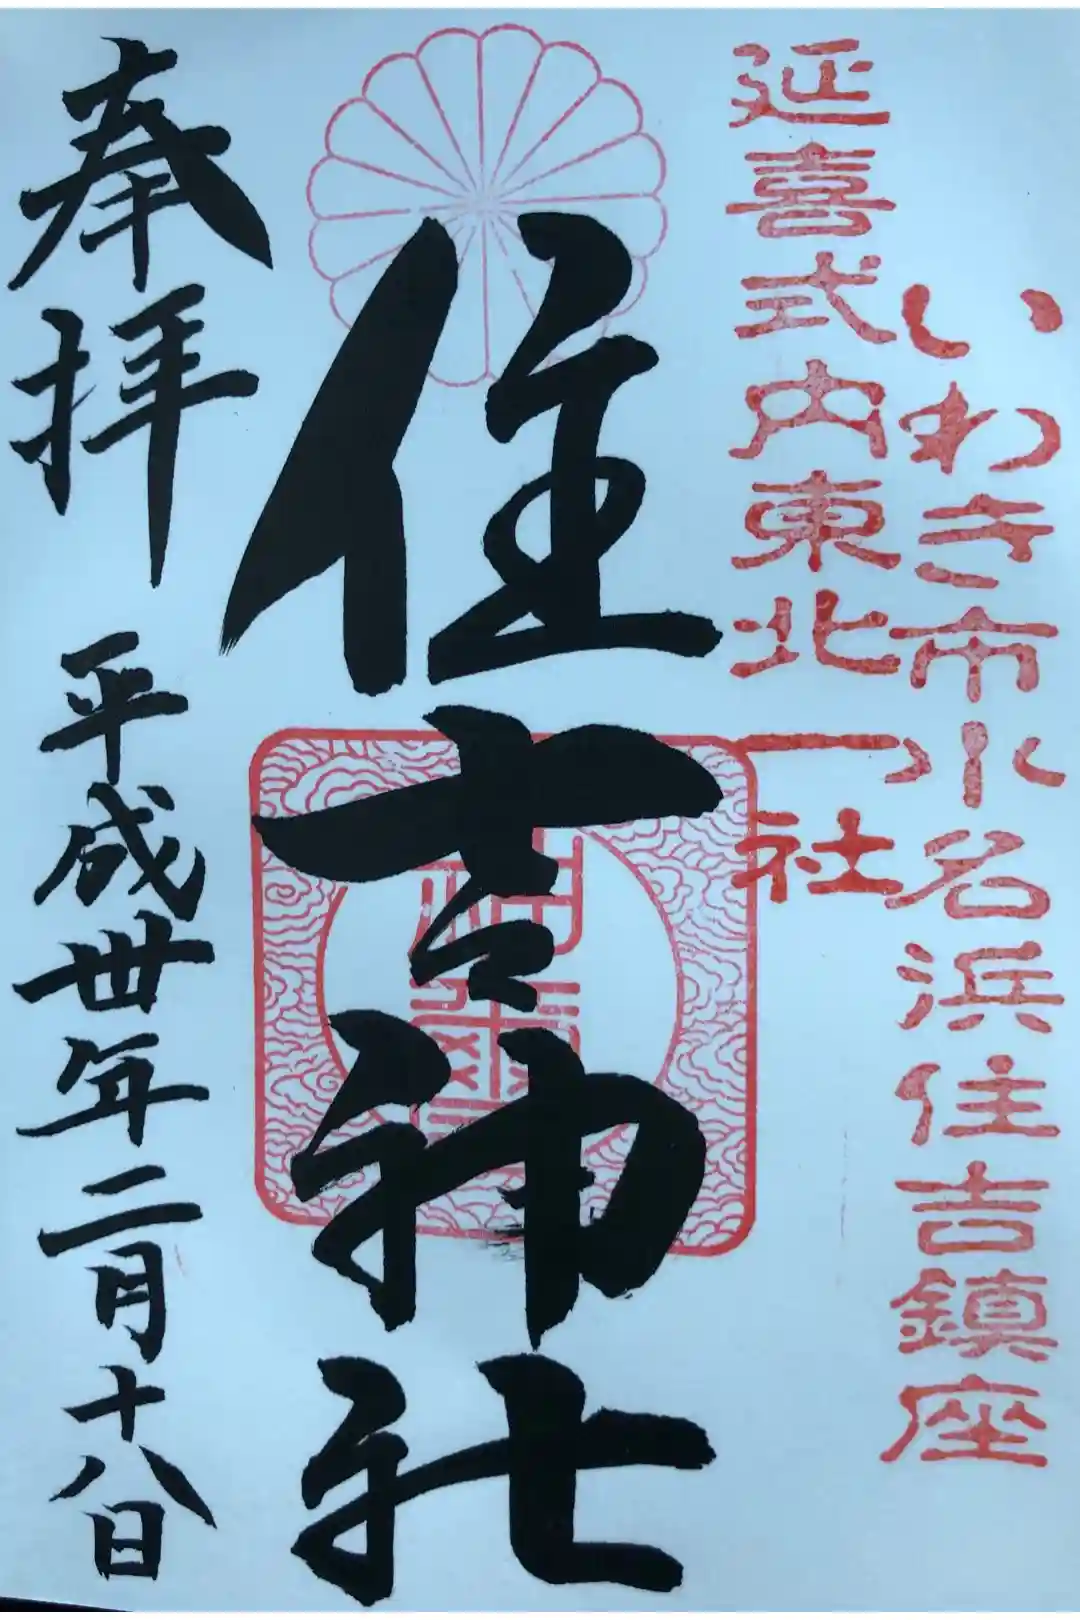 いわき市小名浜住吉鎮座
延喜式内東北一社
住吉神社
奉拝
平成丗年二月十八日